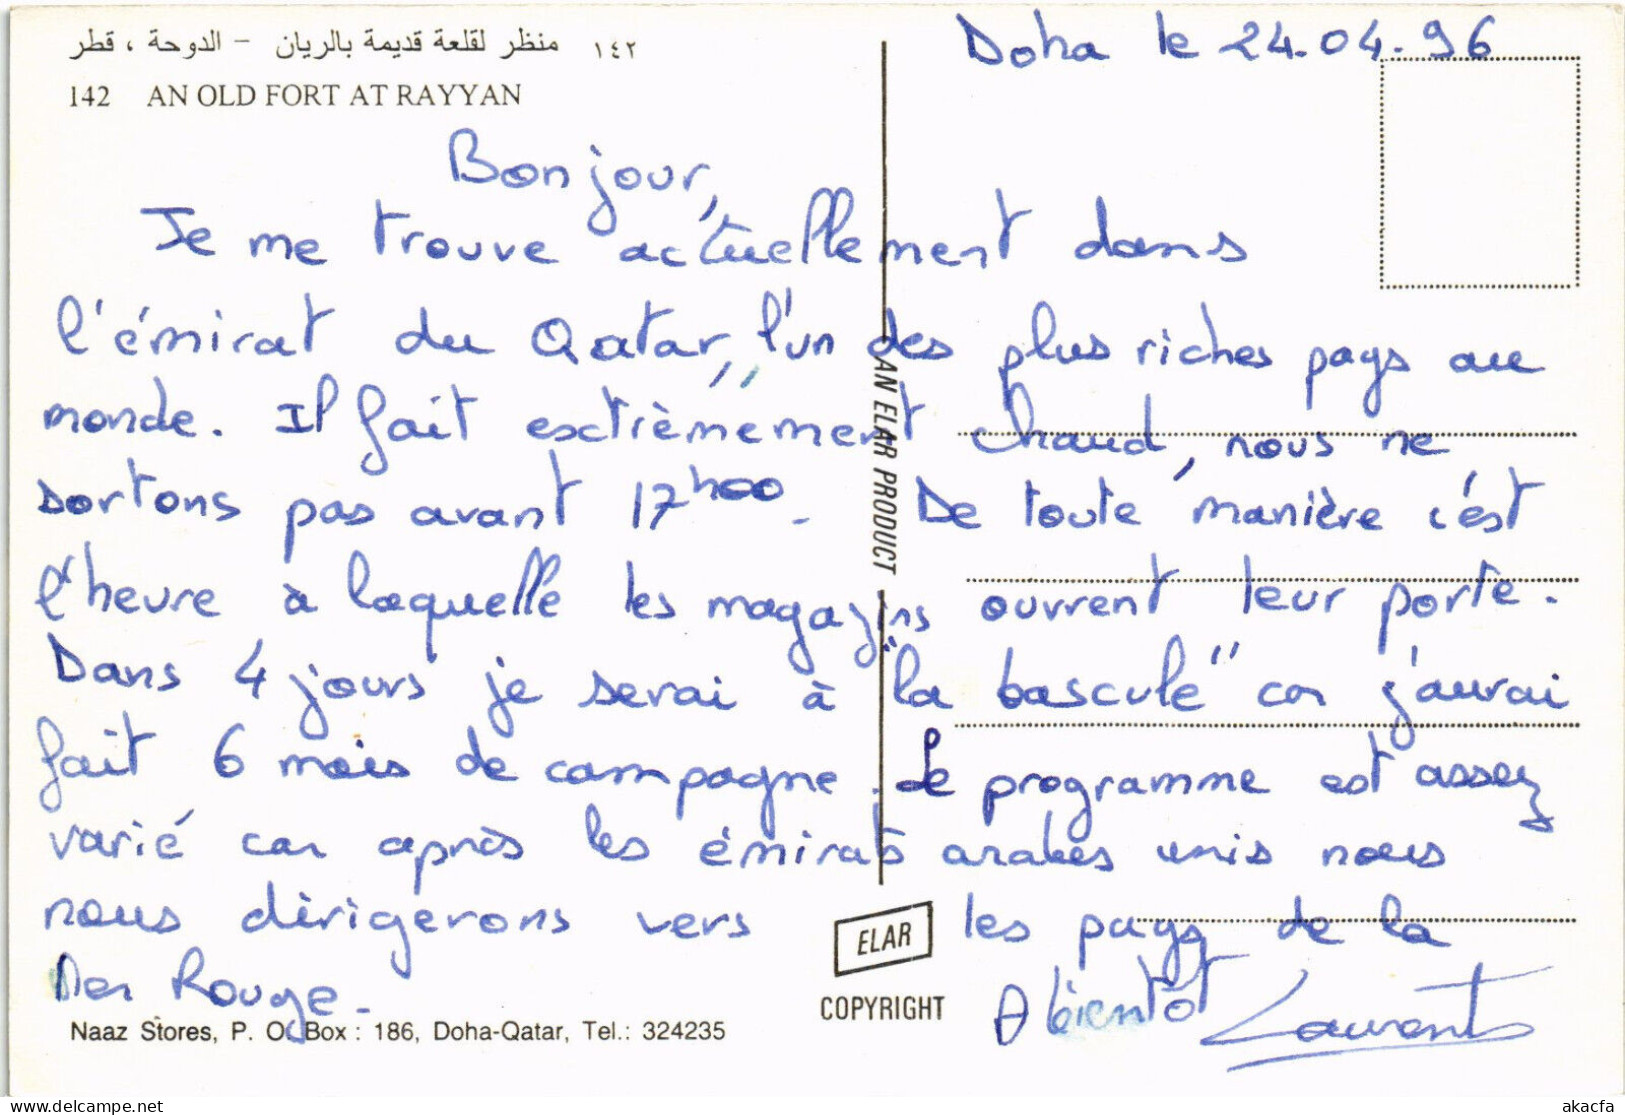 منظر لقلعة قديمة بالريان - الدوحة ، قطر ١٤٢
142 AN OLD FORT AT RAYYAN
Doha le 24.04.96
Bonjour,
Je me trouve actuellement dans
l'émirat du Qatar, l'un des plus riches pays au
monde. Il fait extrèmement chaud, nous ne
sortons pas avant 17h00. De toute manière c'est
l'heure à laquelle les magazins ouvrent leur porte.
Dans 4 jours je serai à "la bascule" car j'aurai
fait 6 mois de campagne. Le programme est assez
varié car après les émirats arabes unis nous
nous dirigerons vers les pays de la
Mer Rouge.
A bientôt Laurent
AN ELAR PRODUCT
ELAR
COPYRIGHT
Naaz Stores, P. O. Box : 186, Doha-Qatar, Tel.: 324235
akacfa